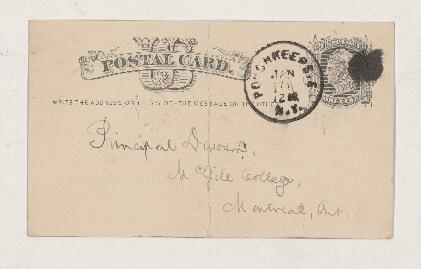 POSTAL CARD.
POUGHKEEPSIE
JAN
12M
N.Y.
WRITE THE ADDRESS ON THIS SIDE - THE MESSAGE ON THE OTHER
Principal Dawson,
McGill College,
Montreal, Ont.